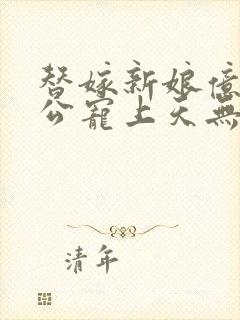 替嫁新娘億
公寵上天無
清年